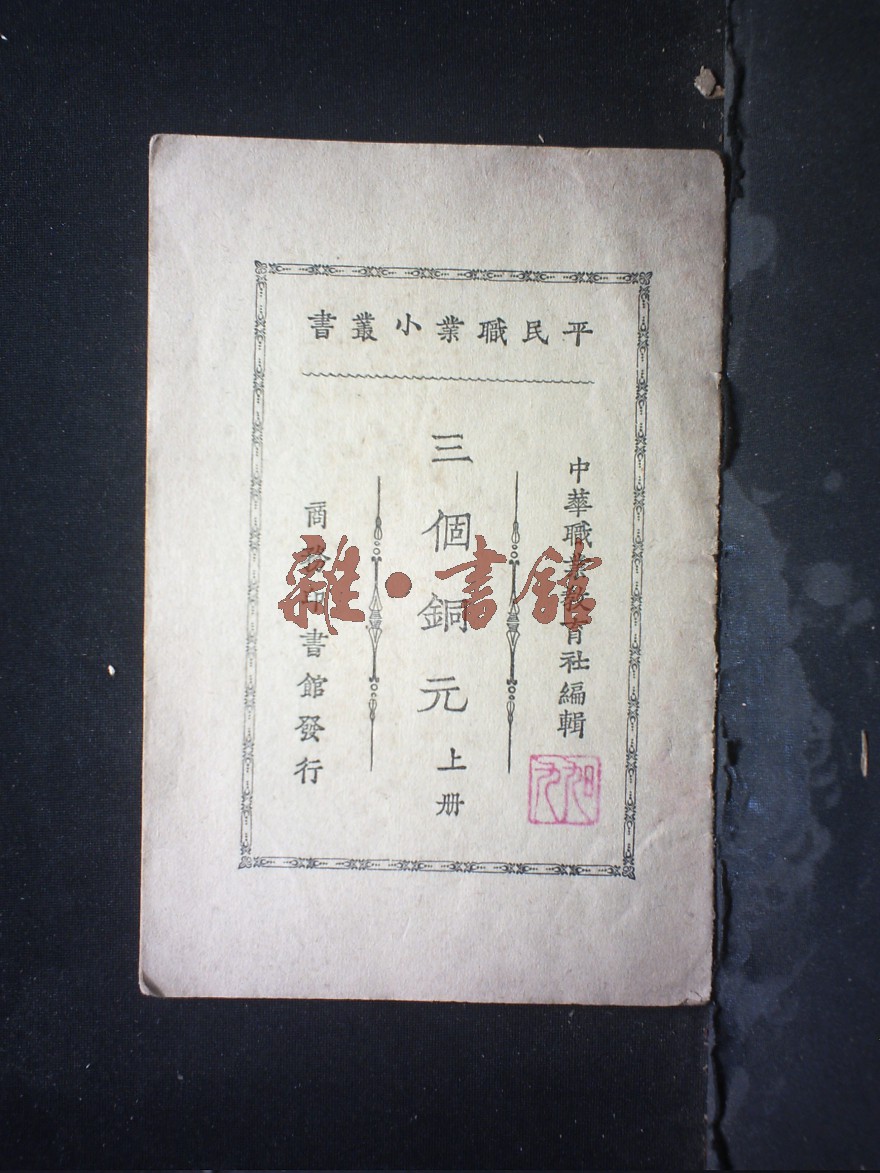 平民職業小叢書
中華職業教育社編輯
三個銅元 上册
商務印書館發行
雜•書館